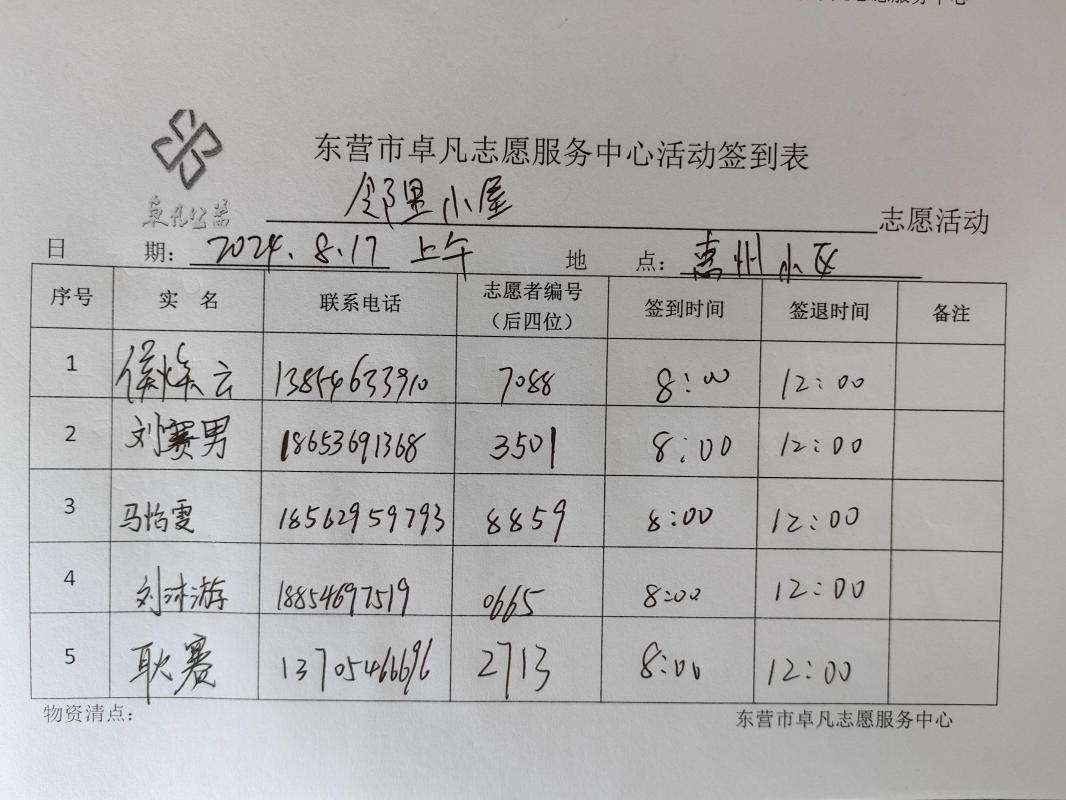 服务中心
卓凡公益
东营市卓凡志愿服务中心活动签到表
邻里小屋 志愿活动
日 期: 2024.8.17 上午 地 点: 惠州小区
序号 实 名 联系电话 志愿者编号(后四位) 签到时间 签退时间 备注
1 侯焕云 13854633910 7088 8:00 12:00
2 刘赛男 18653691368 3501 8:00 12:00
3 马怡雯 18562959793 8859 8:00 12:00
4 刘沐游 18854697519 0665 8:00 12:00
5 耿赛 13705466696 2713 8:00 12:00
物资清点: 东营市卓凡志愿服务中心